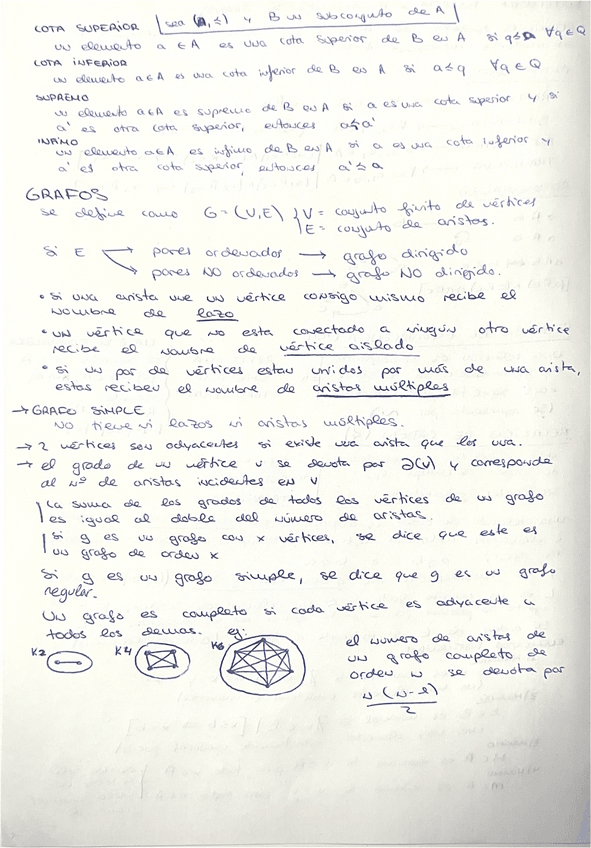 COTA SUPERIOR sea (A, ≤) y B un subconjunto de A
un elemento a ∈ A es una cota superior de B en A si q≤a ∀q∈Q
COTA INFERIOR
un elemento a∈A es una cota inferior de B en A si a≤q ∀q∈Q
SUPREMO
un elemento a∈A es supremo de B en A si a es una cota superior y si
a' es otra cota superior, entonces a≤a'
ÍNFIMO
un elemento a∈A es ínfimo de B en A si a es una cota inferior y
a' es otra cota superior, entonces a'≤a
GRAFOS
se define como G=(V,E) V= conjunto finito de vértices
E= conjunto de aristas.
Si E → pares ordenados → grafo dirigido
→ pares NO ordenados → grafo NO dirigido.
• si una arista une un vértice consigo mismo recibe el
nombre de lazo
• un vértice que no esta conectado a ningún otro vértice
recibe el nombre de vértice aislado
• si un par de vértices estan unidos por más de una arista,
estas reciben el nombre de aristas múltiples
→ GRAFO SIMPLE
NO tiene ni lazos ni aristas múltiples.
→ 2 vértices son adyacentes si existe una arista que los una.
→ el grado de un vértice v se denota por ∂(v) y corresponde
al nº de aristas incidentes en v
La suma de los grados de todos los vértices de un grafo
es igual al doble del número de aristas.
Si g es un grafo con x vértices, se dice que este es
un grafo de orden x
Si g es un grafo simple, se dice que g es un grafo
regular.
Un grafo es completo si cada vértice es adyacente a
todos los demas. eg:
K2 K4 K6
el numero de aristas de
un grafo completo de
orden n se denota por
n(n-1)
2